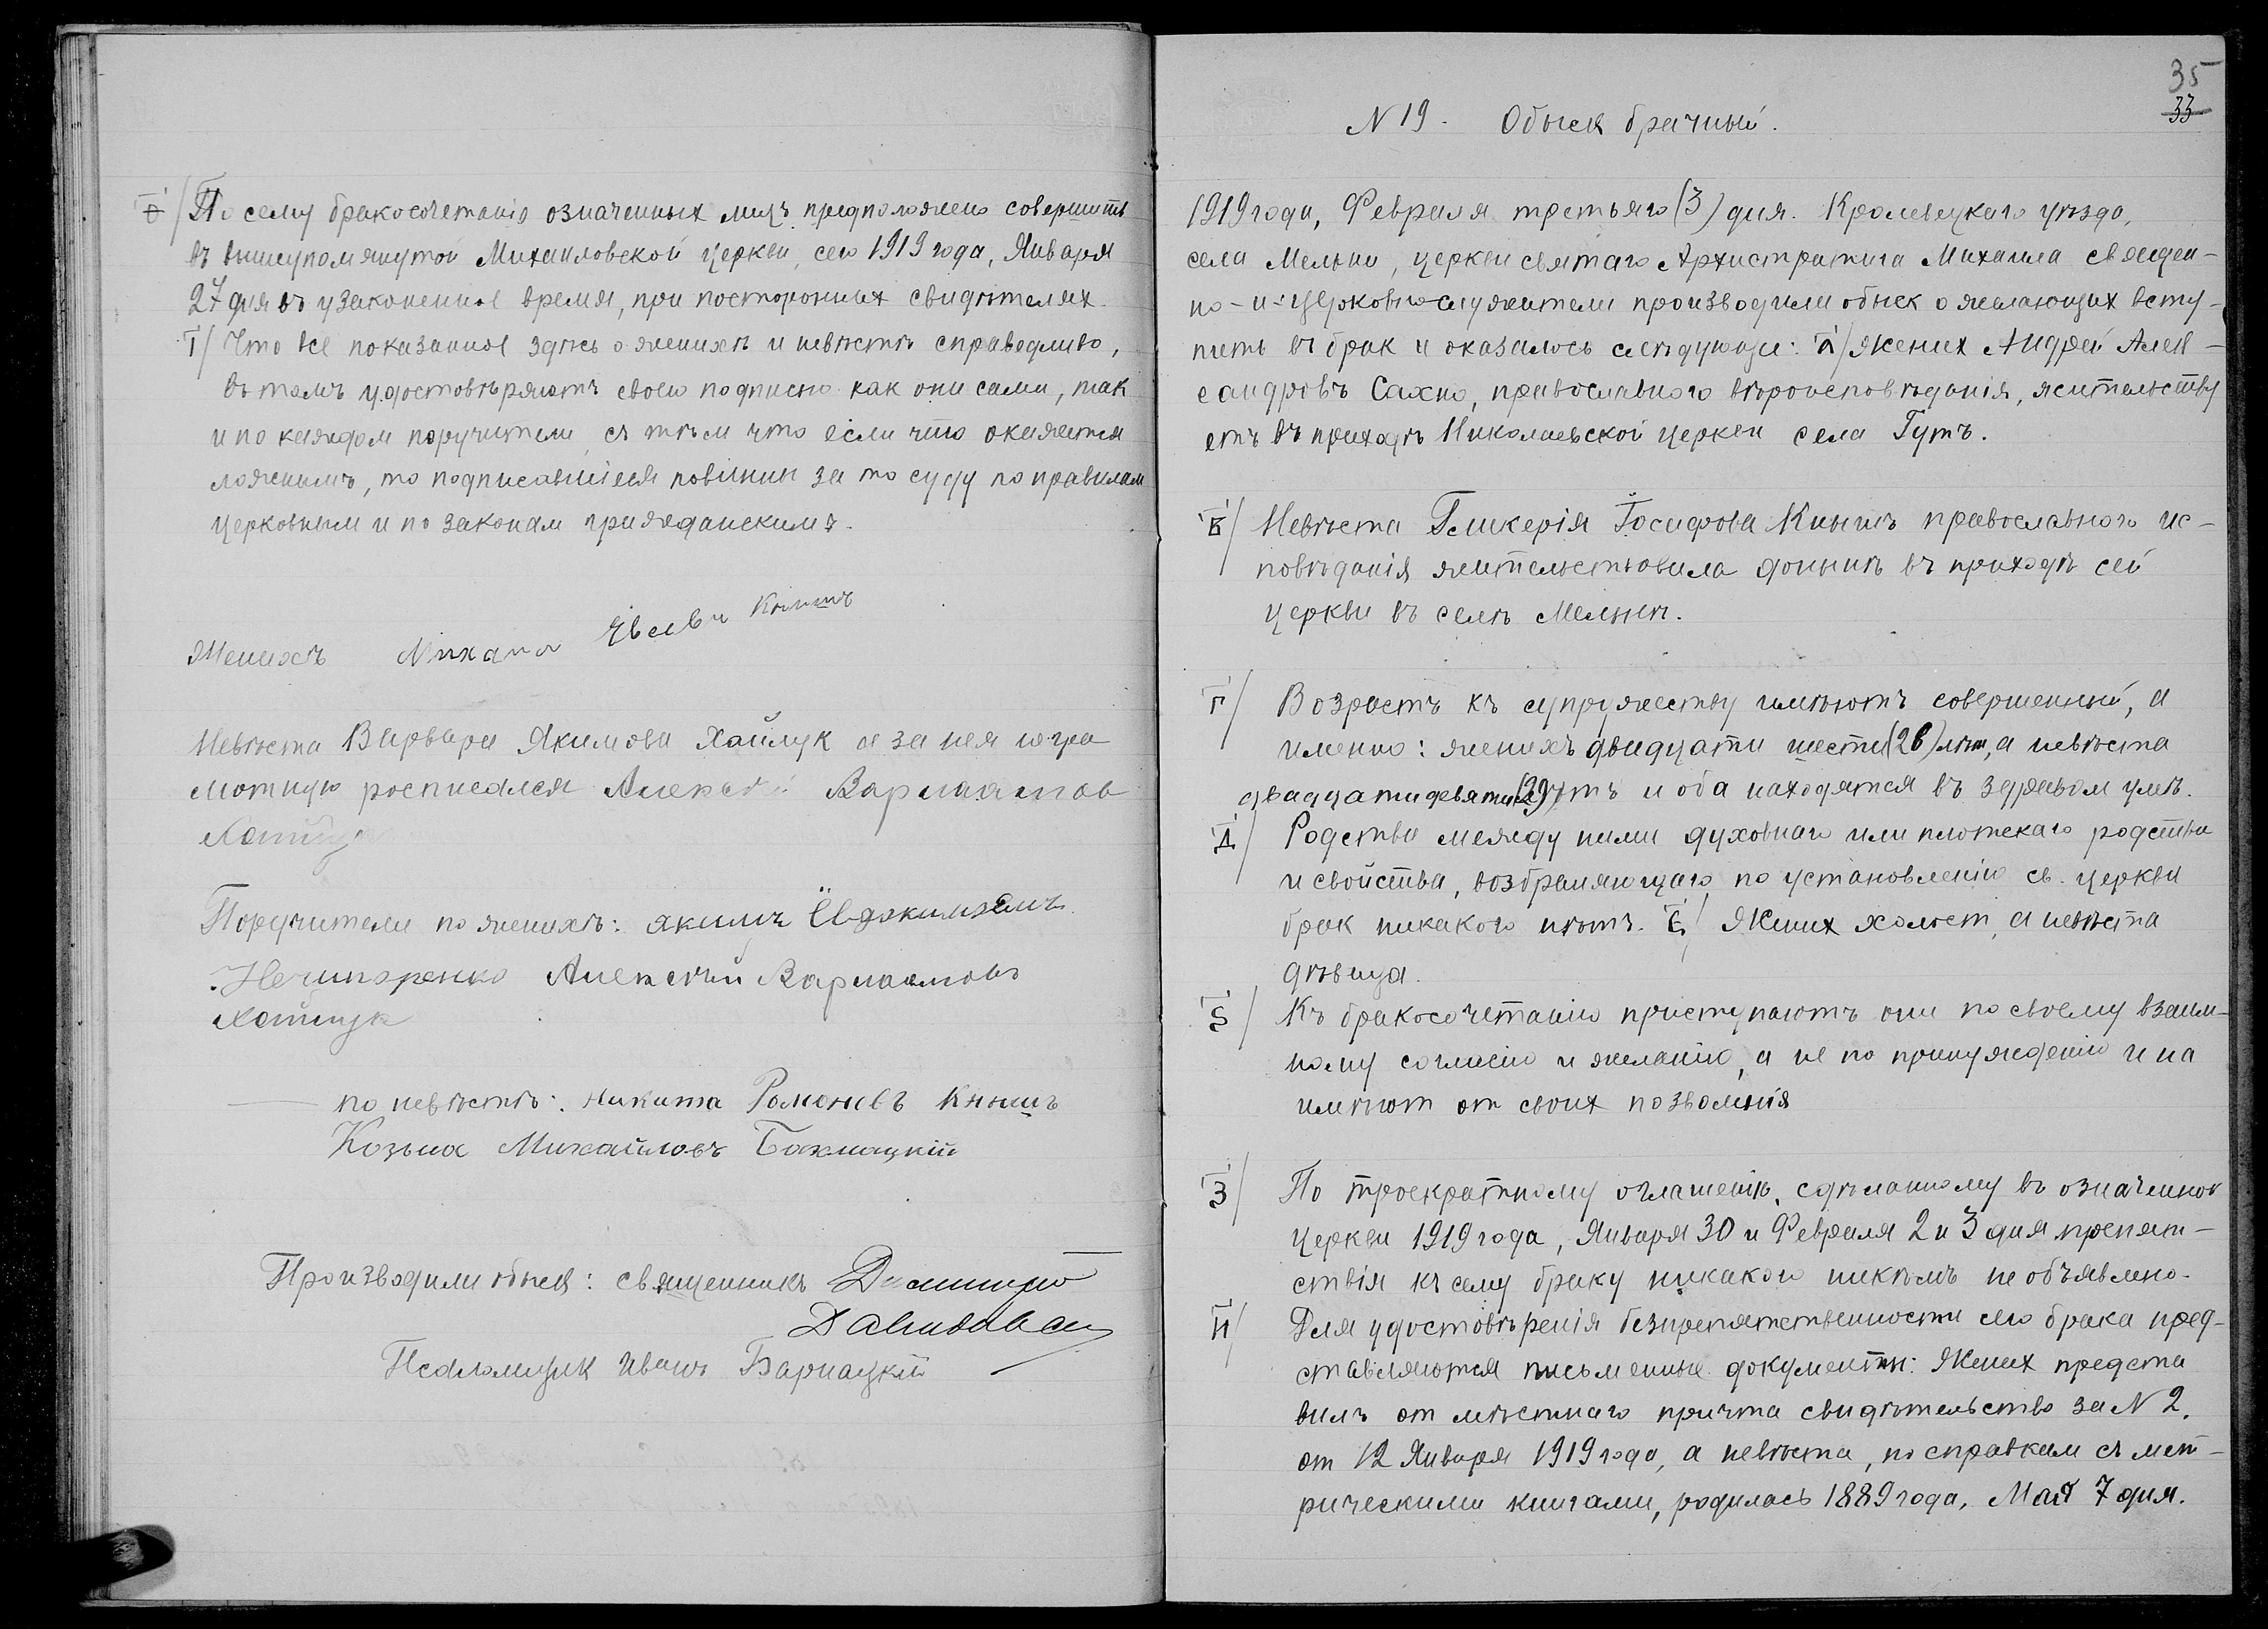 ѳ/ По сему бракосочетанію означенных лицъ предположено совершить
въ вышеупомянутой Михаиловской церкви, сего 1919 года, Января
27 дня въ узаконенное время, при посторонных свидѣтелях.
І/ Что все показанное здѣсь о женихѣ и невѣстѣ справедливо,
въ томъ удостовѣряютъ своею подписью как они сами, так
и по каждом поручители, съ тѣм что если что окажется
ложнымъ, то подписавшіеся повінны за то суду по правилам
церковным и по законам гражданскимъ.
Женихъ Михаил Кнышъ
Невѣста Варвара Якимова Хайлук а за нея негра
мотную росписался Алексѣй Варлаамов
Поручители по женихѣ: Якимъ
Нечипоренко Алексѣй Варлаамовъ
Хайлук
по невѣстѣ: Никита Романовъ Кнышъ
Козьма Михайловъ Бахмацкій
Производили обыск: священникъ Димитрій
Давидовский
Псаломщик Иванъ Барнацкій
35
33
N 19. Обыск брачный.
1919 года, Февраля третьяго (3) дня. Кролевецкаго уѣзда,
села Мельни, церкви святаго Архистратига Михаила священ-
но-и-церковнослужители производили обыск о желающих всту-
пить въ брак и оказалось слѣдующее: а/ Жених Андрей Алек-
сандровъ Сахно, православного вѣроисповѣданія, жительству
етъ въ приходѣ Николаевской церкви села Гутъ.
в/ Невѣста Гликерія Іосифова Кнышъ православного ис-
повѣданія жительствовала донынѣ въ приходѣ сей
церкви въ селѣ Мельнѣ.
г/ Возрастъ къ супружеству имѣютъ совершенный, а
именно: женихъ двадцати шести (26) лѣт, а невѣста
двадцати девяти (29) лѣтъ и оба находятся въ здравом умѣ.
д/ Родства между ними духовнаго или плотскаго родства
и свойства, возбраняющаго по установленію св. церкви
брак никакого нѣтъ. є/ Жених холост, а невѣста
дѣвица.
ѕ/ Къ бракосочетанію приступаютъ они по своему взаим-
ному согласію и желанію, а не по принужденію и на
имѣют от своих позволенія
з/ По троекратному оглашенію, сдѣланному въ означенной
церкви 1919 года, Января 30 и Февраля 2 и 3 дня препят-
ствія къ сему браку никакого никѣмъ не объявлено.
и/ Для удостовѣренія безпрепятственности сего брака пред-
ставляются письменные документы: Жених предста
вилъ от мѣстнаго причта свидѣтельство за N 2.
от 12 Января 1919 года, а невѣста, по справкам съ мет-
рическими книгами, родилась 1889 года, Мая 7 дня.